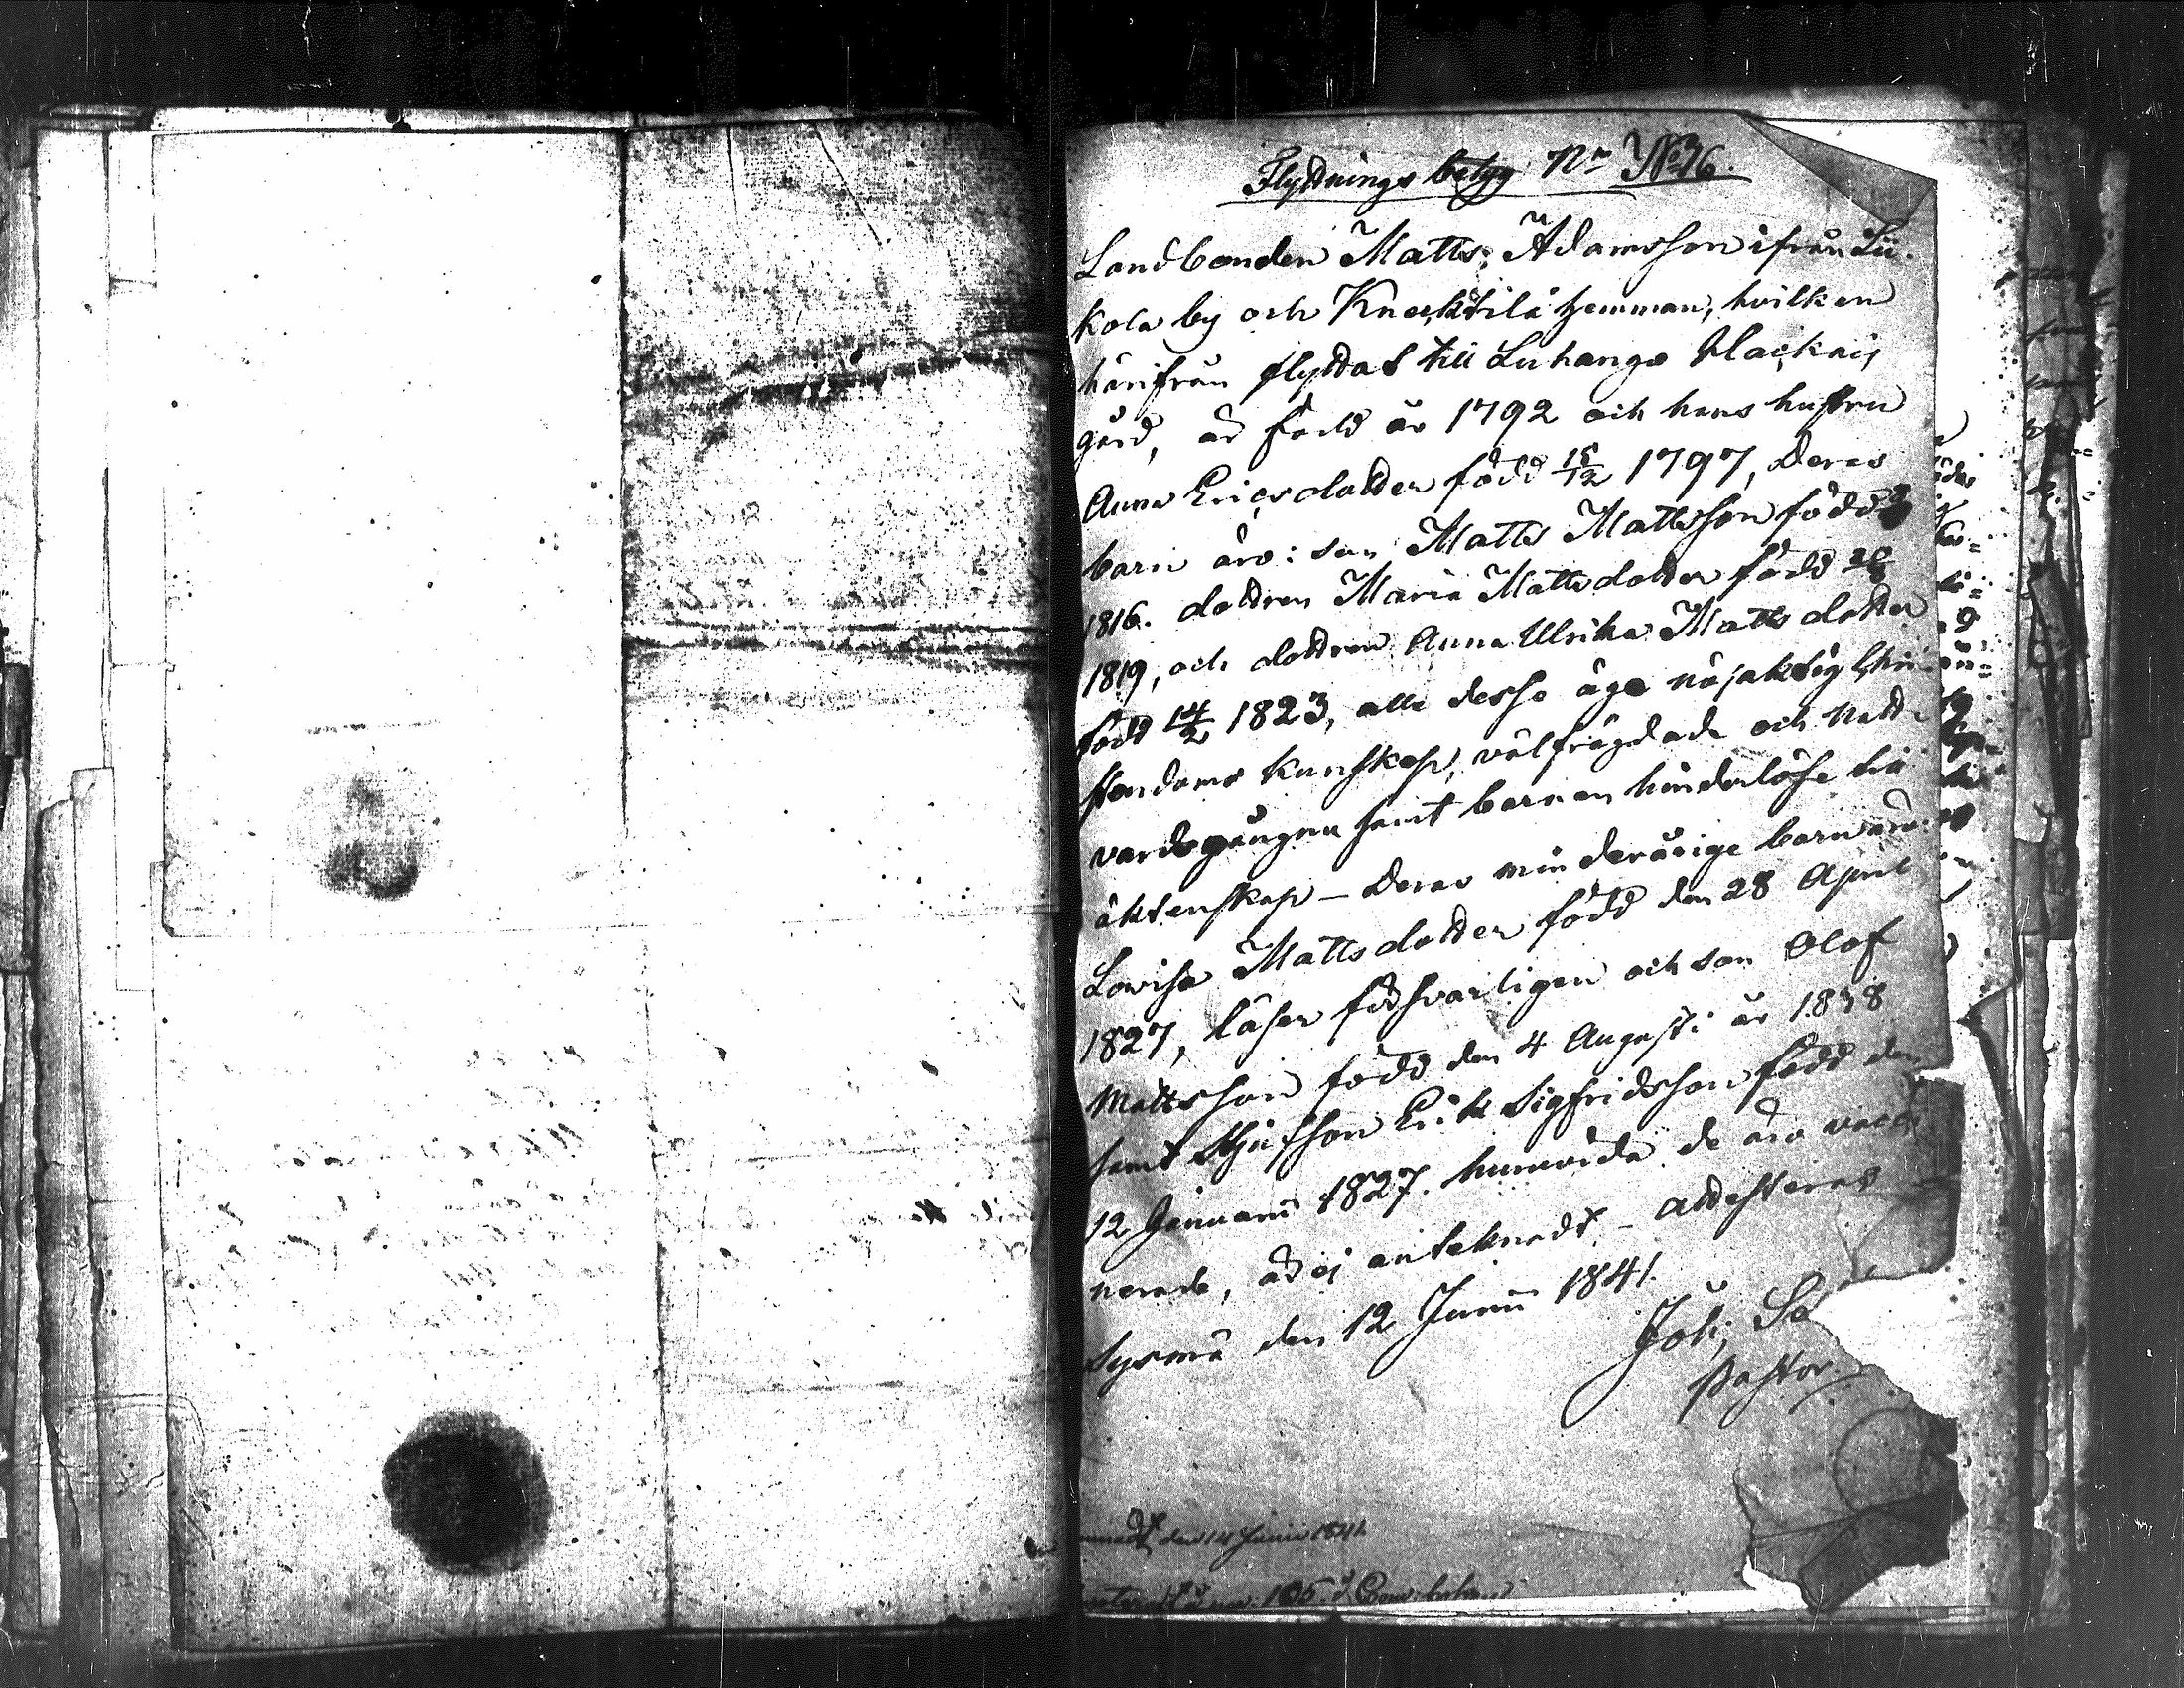 Flyttnings betyg N:o No 36.
Landbonden Matts Adamsson ifrån Lii-
kola by och Knechtilä hemman, hvilken
härifrån flyttat till Luhango Klackais
gård, är född år 1792 och hans hustru
Anna Ericsdotter född 15/12 1797, Deras
barn äro: son Matts Mattsson född
1816. dottren Maria Mattsdotter född
1819, och dottren Anna Ulrika Matts dotter
född 14/2 1823, alla desse äga nöjaktig Chri-
stendoms kunskap, välfrägdade och natt-
vardsgångna samt barnen hinderlöse till
äktenskap – Deras minderårige barn äro:
Lovisa Mattsdotter född den 28 April
1827, läser försvarligen och son Olof
Mattsson född den 4 Augusti år 1838
samt Styfson Erik Sigfridsson född den
12 Januarii 1827. huruvida de äro vacci-
nerade, är ej anteknadt – attesteras
Sysmä den 12 Junii 1841.
Joh; Sa
Pastor.
den 14 Junii 1841
165